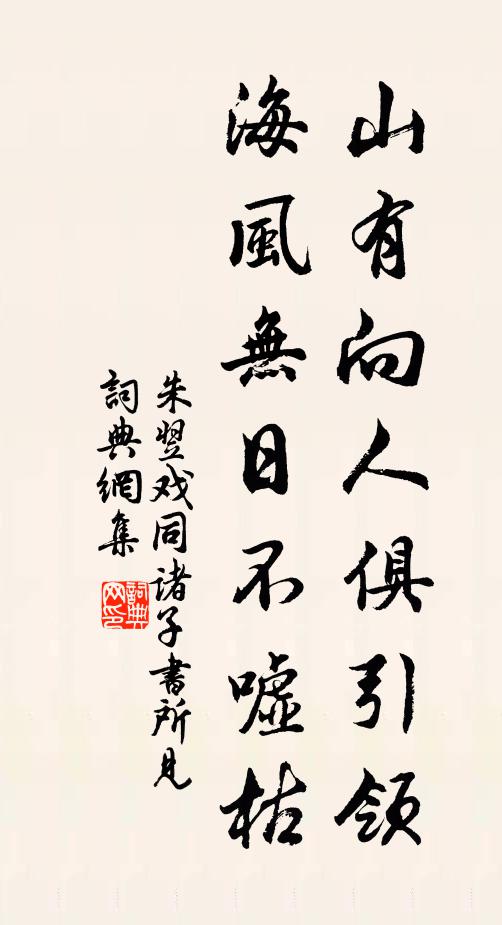 山有向人俱引領
海風無日不噓枯
朱翌戏同诸子書所見
詞典網集
詞典网印